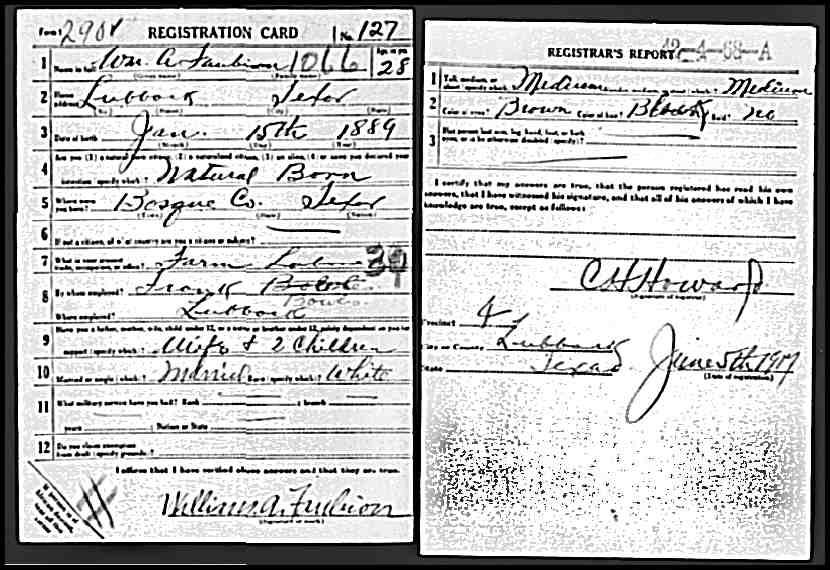 Form 1 2908 REGISTRATION CARD No. 127
1 Name in full Wm. A. Faubion 1066 Age, in yrs 28
(Given name) (Family name)
2 Home address Lubbock Texas
(No.) (Street) (City) (State)
3 Date of birth Jan. 15th 1889
(Month) (Day) (Year)
4 Are you (1) a natural born citizen, (2) a naturalized citizen, (3) an alien, (4) or have you declared your
intention (specify which)? Natural Born
5 Where were you born? Bosque Co. Texas
(Town) (State) (Nation)
6 If not a citizen, of what country are you a citizen or subject?
7 What is your present trade, occupation, or office? Farm 39
8 By whom employed? Frank
Where employed? Lubbock
9 Have you a father, mother, wife, child under 12, or a sister or brother under 12, solely dependent on you for
support (specify which)? Wife & 2 Children
10 Married or single (which)? Married Race (specify which)? White
11 What military service have you had? Rank ; branch
years ; Nation or State
12 Do you claim exemption from draft (specify grounds)?
I affirm that I have verified above answers and that they are true.
William A. Faubion
(Signature or mark)
REGISTRAR'S REPORT 42-4-68-A
1 Tall, medium, or short (specify which)? Medium Slender, medium, or stout (which)? Medium
2 Color of eyes? Brown Color of hair? Black Bald? no
3 Has person lost arm, leg, hand, foot, or both
eyes, or is he otherwise disabled (specify)?
I certify that my answers are true, that the person registered has read his own
answers, that I have witnessed his signature, and that all of his answers of which I have
knowledge are true, except as follows:
C H Howard
(Signature of registrar)
Precinct 4
City or County Lubbock
State Texas
June 5th 1917
(Date of registration)